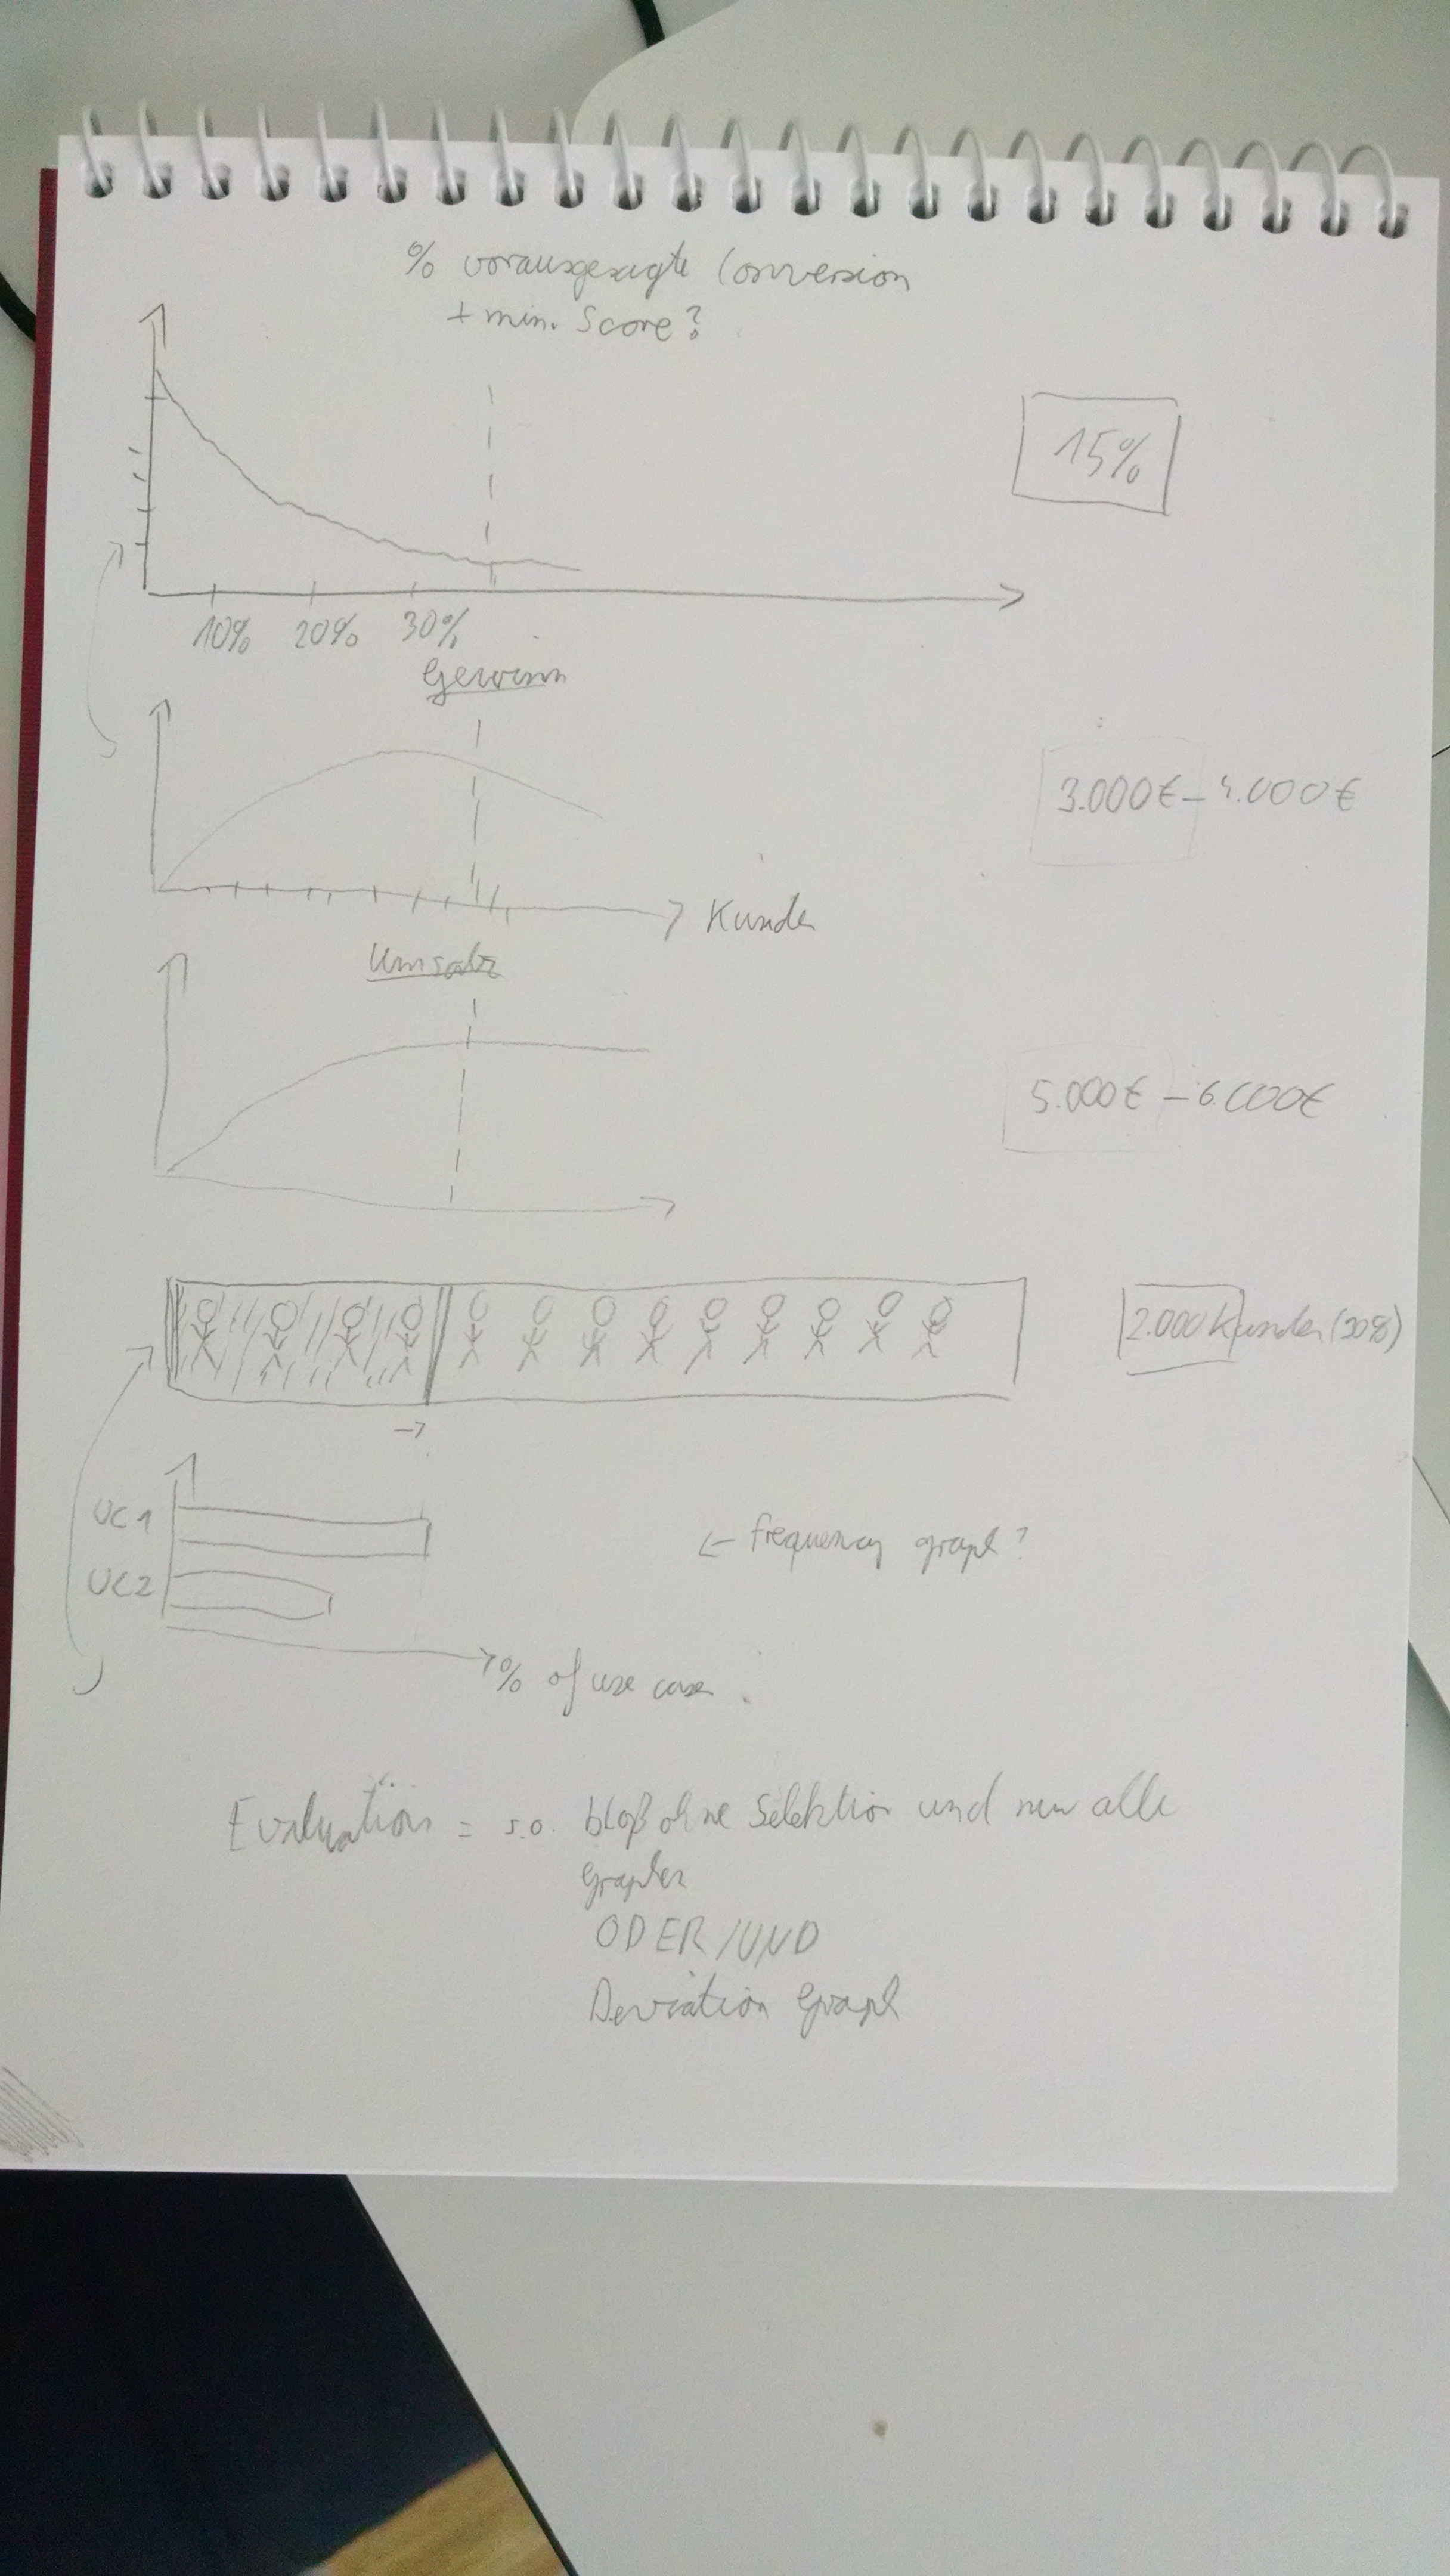 % vorausgesagte Conversion
+ min. Score?
15%
10% 20% 30%
Gewinn
3.000€ - 4.000€
Kunden
Umsatz
5.000€ - 6.000€
2.000 Kunden (30%)
UC1
← frequency graph?
UC2
% of use case
Evaluation = s.o. bloß ohne Selektion und nur alle
Graphen
ODER/UND
Deviation Graph